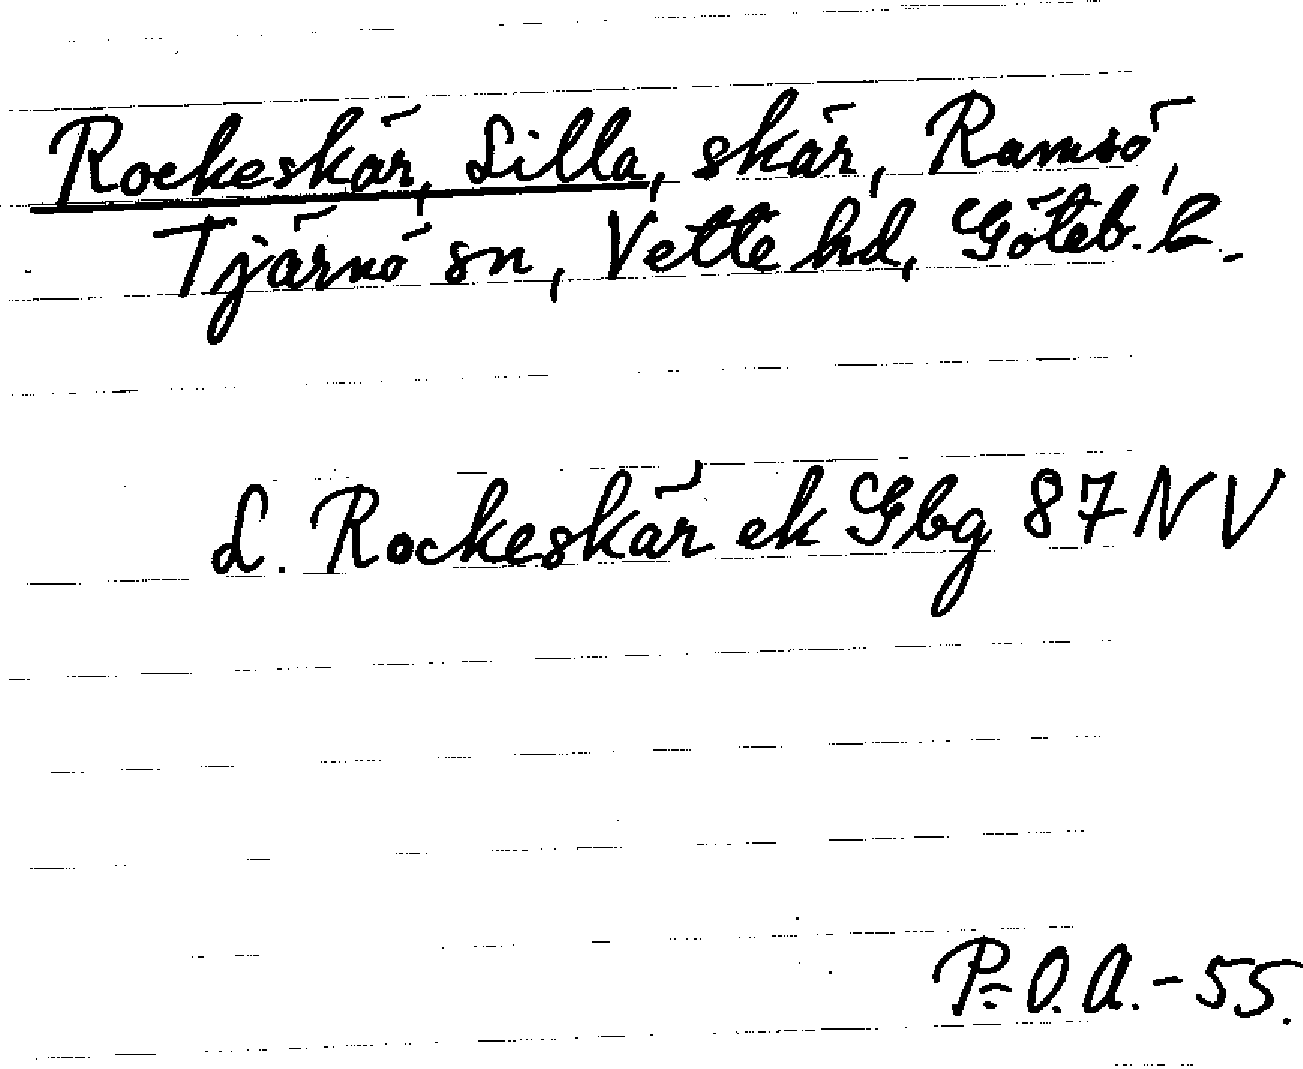 Rockeskär, Lilla, skär, Ramsö,
Tjärnö sn, Vette hd, Göteb. l.
L. Rockeskär ek Gbg 87 NV
P.O.A.-55.